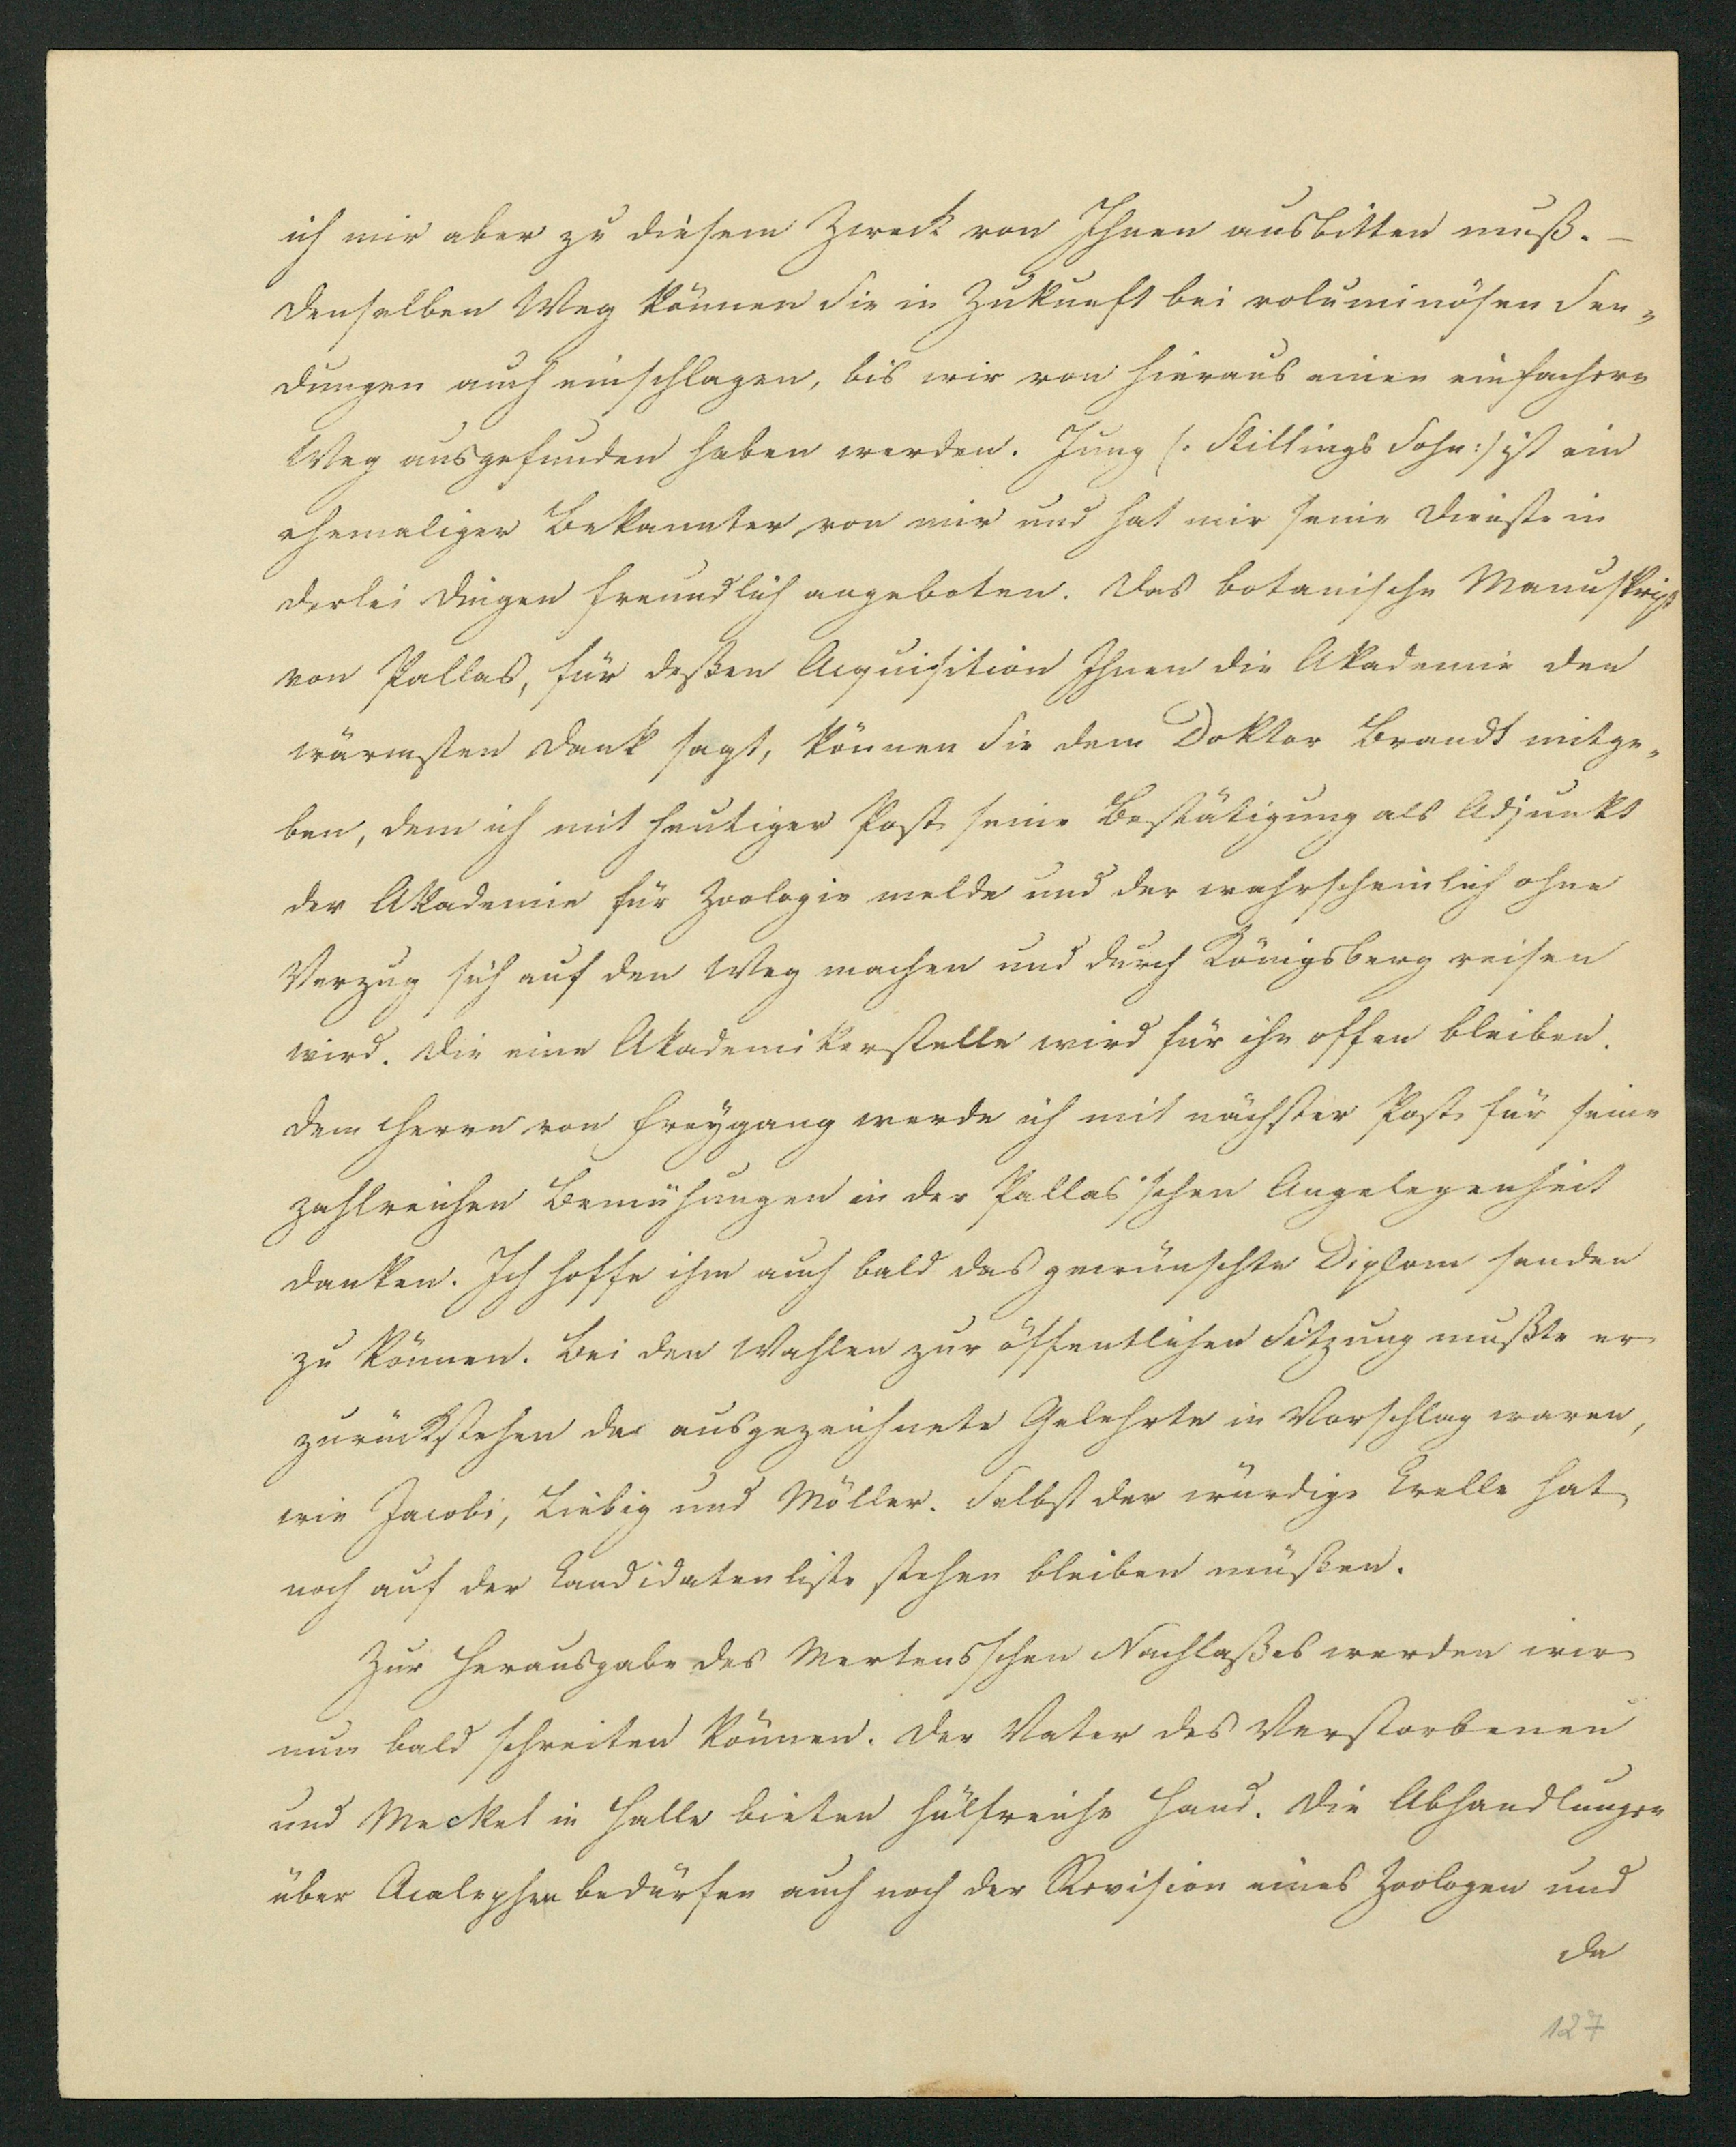 ich mir aber zu diesem Zweck von Ihnen ausbitten muß. –
Denselben Weg können Sie in Zukunft bei voluminösen Sen„
dungen auch einschlagen, bis wir von hieraus einen einfachern
Weg ausgefunden haben werden. Jung (: Stillings Sohn :) ist ein
ehemaliger Bekannter von mir und hat mir seine Dienste in
derlei Dingen freundlich angeboten. Das botanische Manuskript
von Pallas, für deßen Acquisition Ihnen die Akademie den
wärmsten Dank sagt, können Sie dem Doktor Brandt mitge„
ben, dem ich mit heutiger Post seine Bestätigung als Adjunkt
der Akademie für Zoologie melde und der wahrscheinlich ohne
Verzug sich auf den Weg machen und durch Königsberg reisen
wird. Die eine Akademikerstelle wird für ihn offen bleiben.
Dem Herrn von Freygang werde ich mit nächster Post für seine
zahlreichen Bemühungen in der Pallas'schen Angelegenheit
danken. Ich hoffe ihm auch bald das gewünschte Diplom senden
zu können. Bei den Wahlen zur öffentlichen Sitzung mußte er
zurückstehen da ausgezeichnete Gelehrte in Vorschlag waren,
wie Jacobi, Liebig und Möller. Selbst der würdige Crelle hat
noch auf der Candidatenliste stehen bleiben müßen.
Zur Herausgabe des Mertensschen Nachlaßes werden wir
nun bald schreiten können. Der Vater des Verstorbenen
und Meckel in Halle bieten hülfreiche Hand. Die Abhandlungen
über Acalephen bedürfen auch noch der Revision eines Zoologen und
da
127